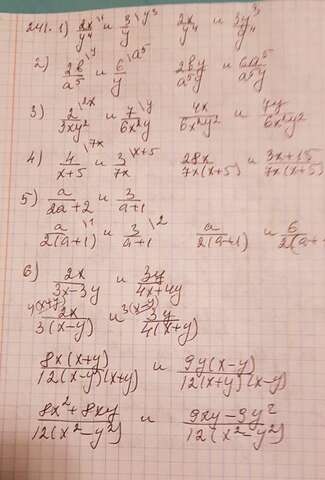 241. 1) 2x/y⁴ \¹ и 3/y \y³ 2x/y⁴ и 3y³/y⁴
2) 2b/a⁵ \y и 6/y \a⁵ 2by/a⁵y и 6a⁵/a⁵y
3) 2/3xy² \2x и 7/6x²y \y 4x/6x²y² и 7y/6x²y²
4) 4/x+5 \7x и 3/7x \x+5 28x/7x(x+5) и 3x+15/7x(x+5)
5) a/2a+2 и 3/a+1
a/2(a+1) \¹ и 3/a+1 \2 a/2(a+1) и 6/2(a+
6) 2x/3x-3y и 3y/4x+4y
4(x+y)\ 2x/3(x-y) и 3(x-y)\ 3y/4(x+y)
8x(x+y)/12(x-y)(x+y) и 9y(x-y)/12(x+y)(x-y)
8x²+8xy/12(x²-y²) и 9xy-9y²/12(x²-y²)